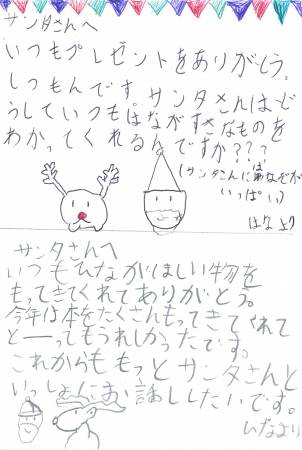 サンタさんへ
いつもプレゼントをありがとう。
しつもんです。サンタさんはど
うしていつもはながすきなものを
わかってくれるんですか???
(サンタさんにはなぞが
いっぱい)
はなより
サンタさんへ
いつもひながほしい物を
もってきてくれてありがとう。
今年は本をたくさんもってきてくれて
と——ってもうれしかったです。
これからももっとサンタさんと
いっしょにお話ししたいです。
ひなより